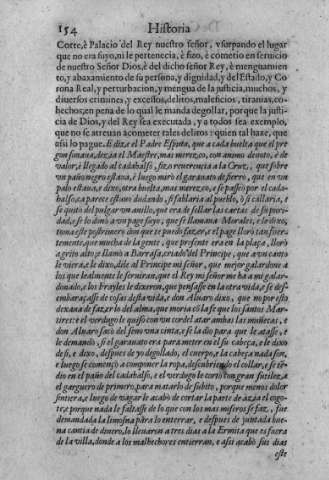 154 Historia
Corte, è Palacio del Rey nuestro señor, vsurpando el lugar
que no era suyo, ni le pertenecia, è fizo, è cometio en seruicio
de nuestro Señor Dios, è del dicho señor Rey, è menguamien
to, y abaxamiento de su persona, y dignidad, y del Estado, y Co
rona Real, y perturbacion, y mengua de la justicia, muchos, y
diuersos crimines, y excessos, delitos, maleficios, tiranias, co-
hechos, en pena de lo qual le manda degollar, porque la justi
cia de Dios, y del Rey sea executada, y a todos sea exemplo,
que no se atreuan acometer tales delitos: quien tal haze, que
assi lo pague. dize el Padre Espina, que a cada buelta que el pre
gon sonaua, dezia el Maestre, mas merezco, con animo deuoto, è de
valor, è llegado al cadahalso, fizo reuerencia a la Cruz, que sobre
vn paño negro estaua, è luego mirò el garauato de fierro, que en vn
palo estaua, è dixo, otra buelta, mas merezco, è se passeò por el cada-
halso, ca parece estauo dudando, si fablaria al pueblo, ò si callaria, è
se quitò del pulgar vn anillo, que era de sellar las cartas de su puri-
dad, è se lo dio a vn page suyo, que se llamaua Morales, è le dixo,
toma este postrimero don que te puedo fazer, è el page llorò tan fuer-
temente, que mucha de la gente, que presente era en la plaça, llorò
a grito alto, è llamò a Barrasa, criado del Principe, que a vn canto
le viera, è le dixo, dile al Principe mi señor, que mejor galardone a
los que lealmente le siruieran, que el Rey mi señor me ha a mi galar-
donado, è los Frayles le dixeron, que pensasse en la otra vida, è se des-
embaraçasse de cosas desta vida, è don Aluaro dixo, que no por esto
dexaua de fazer lo del alma, que moria cõ la fe que los santos Mar-
tires: è el verdugo le quiso con vn cordel atar ambas las muñecas, è
don Aluaro sacò del seno vna cinta, è se la dio para que le atasse, è
le demandò, si el garauato era para meter en el su cabeça, è le dixo
de si, è dixo, despues de yo degollado, el cuerpo, è la cabeça nada son,
è luego se començò a componer la ropa, descubriendo el collar, è se ten-
dio en el paño del cadahalso, è el verdugo le cortò con gran sutileza
el garguero de primero, para matarlo de subito, porque menos dolor
sintiera, è luego de vagar le acabò de cortar la parte de àzia el cogo-
te, è porque nada le faltasse de lo que con los mas miseros se faz, fue
demandada la limosna para lo enterrar, è despues de juntada bue-
na cantia de dinero, lo lleuaron a tres dias a la Ermita que es fuera
de la villa, donde a los malhechores entierran, è assi acabò sus dias
este